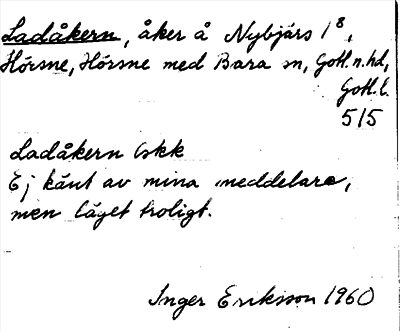 Ladåkern, åker å Nybjärs 1⁸,
Hörsne, Hörsne med Bara sn, Gotl. n. hd,
Gotl. l.
5/5
Ladåkern Gskk
Ej känt av mina meddelare,
men läget troligt.
Inger Eriksson 1960